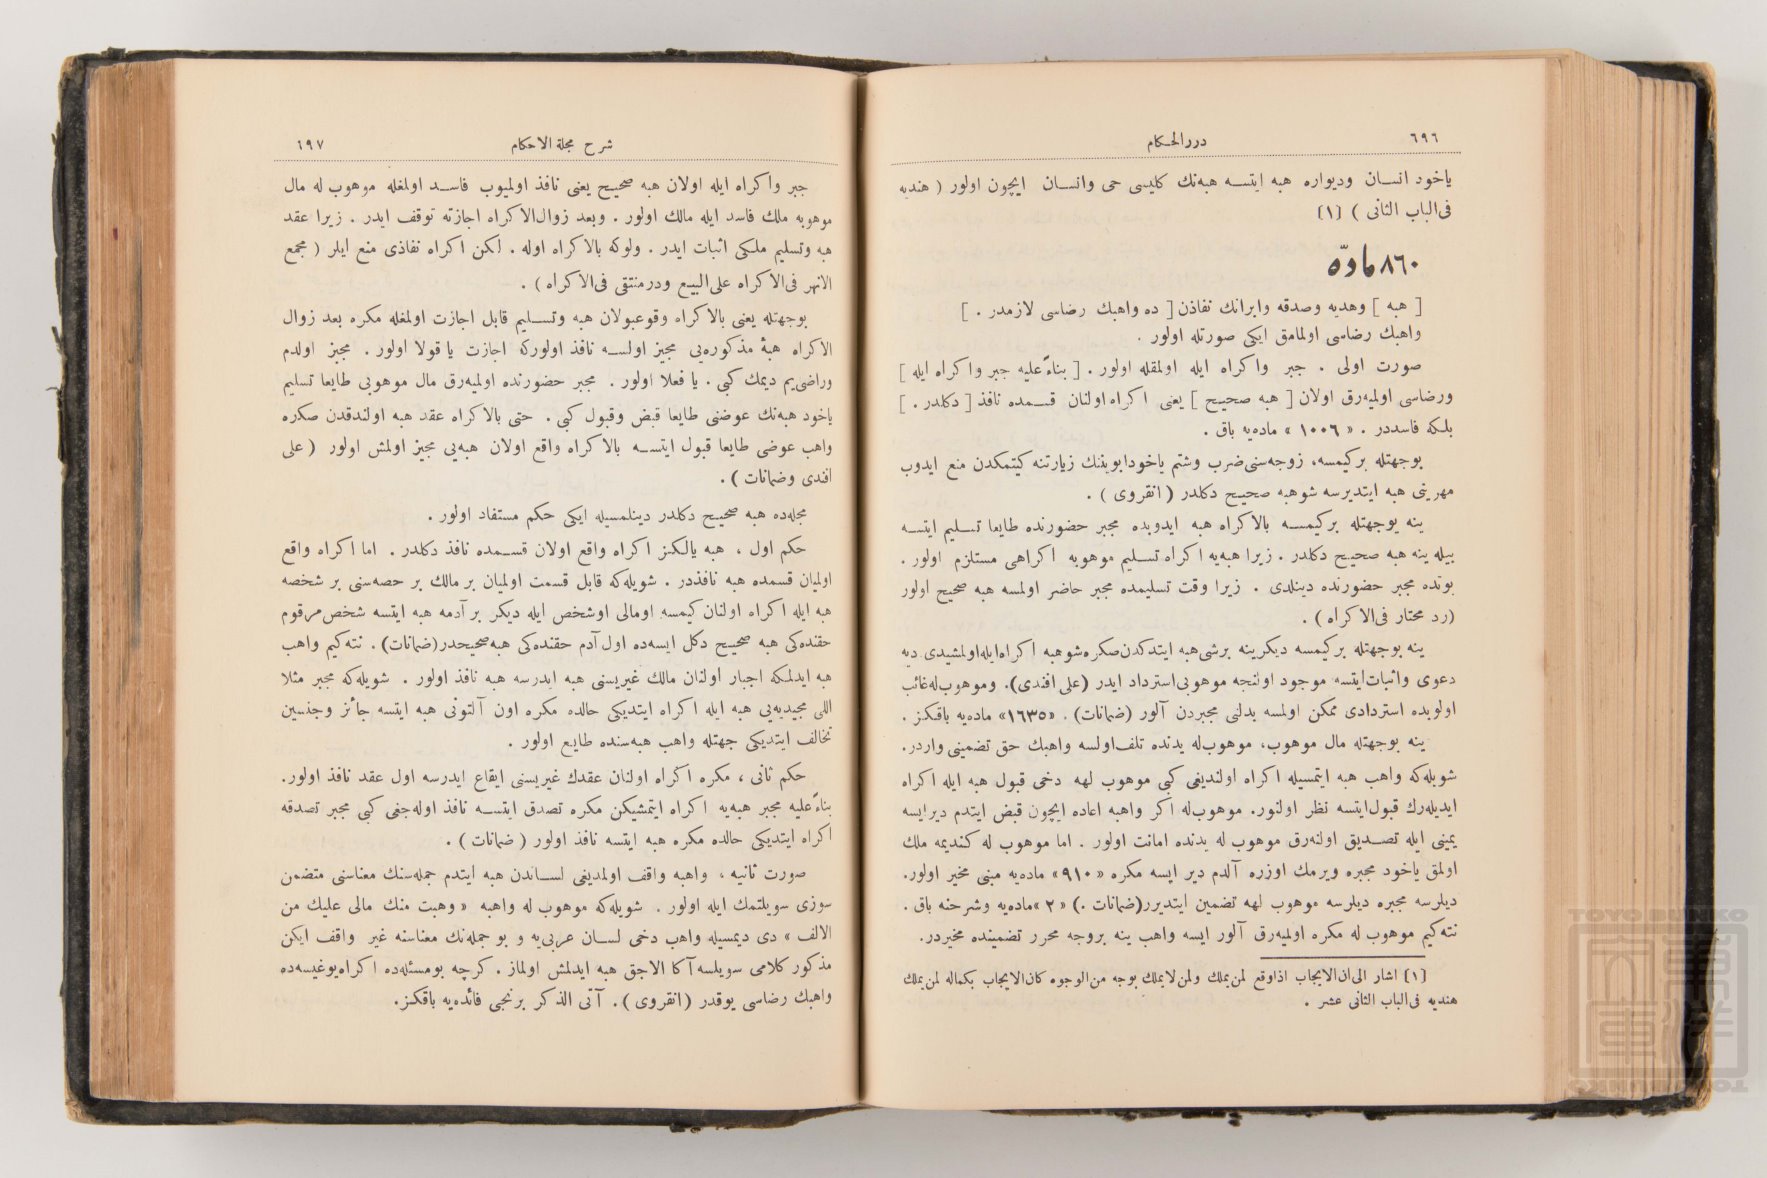 ٦٩٦
دررالحكام
ياخود انسان وديواره هبه ايتسه هبه‌نك كليسى حى وانسان ايچون اولور ( هنديه
فى‌الباب الثانى ) [١]
٨٦٠ مادّه
[ هبه ] وهديه وصدقه وابرانك نفاذن[ ده واهبك رضاسى لازمدر . ]
واهبك رضاسى اولمامق ايكى صورتله اولور .
صورت اولى . جبر واكراه ايله اولمقله اولور . [ بناءً عليه جبر واكراه ايله ]
ورضاسى اوليه‌رق اولان [ هبه صحيح ] يعنى اكراه اولنان قسمده نافذ [ دكلدر . ]
بلكه فاسددر . « ١٠٠٦ » ماده‌يه باق .
بوجهتله بركيمسه، زوجه‌سنى ضرب وشتم ياخود ابويننك زيارتنه كيتمكدن منع ايدوب
مهرينى هبه ايتديرسه شو هبه صحيح دكلدر ( انقروى ) .
ينه بوجهتله بركيمسه بالاكراه هبه ايدوبده مجبر حضورنده طايعا تسليم ايتسه
بيله ينه هبه صحيح دكلدر . زيرا هبه‌يه اكراه تسليم موهوبه اكراهى مستلزم اولور .
بونده مجبر حضورنده دينلدى . زيرا وقت تسليمده مجبر حاضر اولمسه هبه صحيح اولور
(رد محتار فى‌الاكراه ) .
ينه بوجهتله بركيمسه ديكرينه برشى هبه ايتدكدن‌صكره شو هبه اكراه‌ايله‌اولمشيدى ديه
دعوى واثبات‌ايتسه موجود اولنجه موهوبى‌استرداد ايدر (على افندى). وموهوب‌له‌غائب
اولوبده استردادى ممكن اولمسه بدلنى مجبردن آلور (ضمانات) . «١٦٣٥» ماده‌يه باقكز .
ينه بوجهتله مال موهوب، موهوب‌له يدنده تلف‌اولسه واهبك حق تضمينى واردر.
شويله‌كه واهب هبه ايتمسيله اكراه اولنديغى كبى موهوب لهه دخى قبول هبه ايله اكراه
ايديله‌رك قبول‌ايتسه نظر اولنور. موهوب‌له اكر واهبه اعاده ايچون قبض ايتدم ديرايسه
يمينى ايله تصديق اولنه‌رق موهوب له يدنده امانت اولور . اما موهوب له كنديمه ملك
اولمق ياخود مجبره ويرمك اوزره آلدم دير ايسه مكره «٩١٠» ماده‌يه مبنى مخير اولور.
ديلرسه مجبره ديلرسه موهوب لهه تضمين ايتديرر(ضمانات .) « ٢ »ماده‌يه وشرحنه باق .
نته‌كيم موهوب له مكره اوليه‌رق آلور ايسه واهب ينه بروجه محرر تضمينده مخيردر.
[١] اشار الى‌ان‌الايجاب اذاوقع لمن‌يملك ولمن‌لايملك بوجه من‌الوجوه كان‌الايجاب بكماله لمن‌يملك
هنديه فى‌الباب الثانى عشر .
شرح مجلة الاحكام
٦٩٧
جبر واكراه ايله اولان هبه صحيح يعنى نافذ اولميوب فاسد اولمغله موهوب له مال
موهوبه ملك فاسد ايله مالك اولور . وبعد زوال‌الاكراه اجازته توقف ايدر . زيرا عقد
هبه وتسليم ملكى اثبات ايدر . ولوكه بالاكراه اوله . لكن اكراه نفاذى منع ايلر ( مجمع
الانهر فى‌الاكراه على‌البيع ودرمنتقى فى‌الاكراه ) .
بوجهتله يعنى بالاكراه وقوعبولان هبه وتسليم قابل اجازت اولمغله مكره بعد زوال
الاكراه هبهٔ مذكوره‌يى مجيز اولسه نافذ اولوركه اجازت يا قولا اولور . مجيز اولدم
وراضى‌يم ديمك كبى . يا فعلا اولور . مجبر حضورنده اوليه‌رق مال موهوبى طايعا تسليم
ياخود هبه‌نك عوضنى طايعا قبض وقبول كبى . حتى بالاكراه عقد هبه اولندقدن صكره
واهب عوضى طايعا قبول ايتسه بالاكراه واقع اولان هبه‌يى مجيز اولمش اولور ( على
افندى وضمانات ) .
مجله‌ده هبه صحيح دكلدر دينلمسيله ايكى حكم مستفاد اولور .
حكم اول ، هبه يالكز اكراه واقع اولان قسمده نافذ دكلدر . اما اكراه واقع
اوليان قسمده هبه نافذدر . شويله‌كه قابل قسمت اوليان بر مالك بر حصه‌سنى بر شخصه
هبه ايله اكراه اولنان كيمسه اومالى اوشخص ايله ديكر بر آدمه هبه ايتسه شخص مرقوم
حقنده‌كى هبه صحيح دكل ايسه‌ده اول آدم حقنده‌كى هبه صحيحدر(ضمانات). نته‌كيم واهب
هبه ايدلمكه اجبار اولنان مالك غيريسنى هبه ايدرسه هبه نافذ اولور . شويله‌كه مجبر مثلا
اللى مجيديه‌يى هبه ايله اكراه ايتديكى حالده مكره اون آلتونى هبه ايتسه جائز وجنسين
تخالف ايتديكى جهتله واهب هبه‌سنده طايع اولور .
حكم ثانى ، مكره اكراه اولنان عقدك غيريسنى ايقاع ايدرسه اول عقد نافذ اولور.
بناءً عليه مجبر هبه‌يه اكراه ايتمشيكن مكره تصدق ايتسه نافذ اوله‌جغى كبى مجبر تصدقه
اكراه ايتديكى حالده مكره هبه ايتسه نافذ اولور ( ضمانات ) .
صورت ثانيه ، واهبه واقف اولمديغى لساندن هبه ايتدم جمله‌سنك معناسنى متضمن
سوزى سويلتمك ايله اولور . شويله‌كه موهوب له واهبه « وهبت منك مالى عليك من
الالف » دى ديمسيله واهب دخى لسان عربى‌يه و بو جمله‌نك معناسنه غير واقف ايكن
مذكور كلامى سويلسه آكا الاجق هبه ايدلمش اولماز . كرچه بومسئله‌ده اكراه‌يوغيسه‌ده
واهبك رضاسى يوقدر (انقروى) . آتى الذكر برنجى فائده‌يه باقكز.
TOYO BUNKO